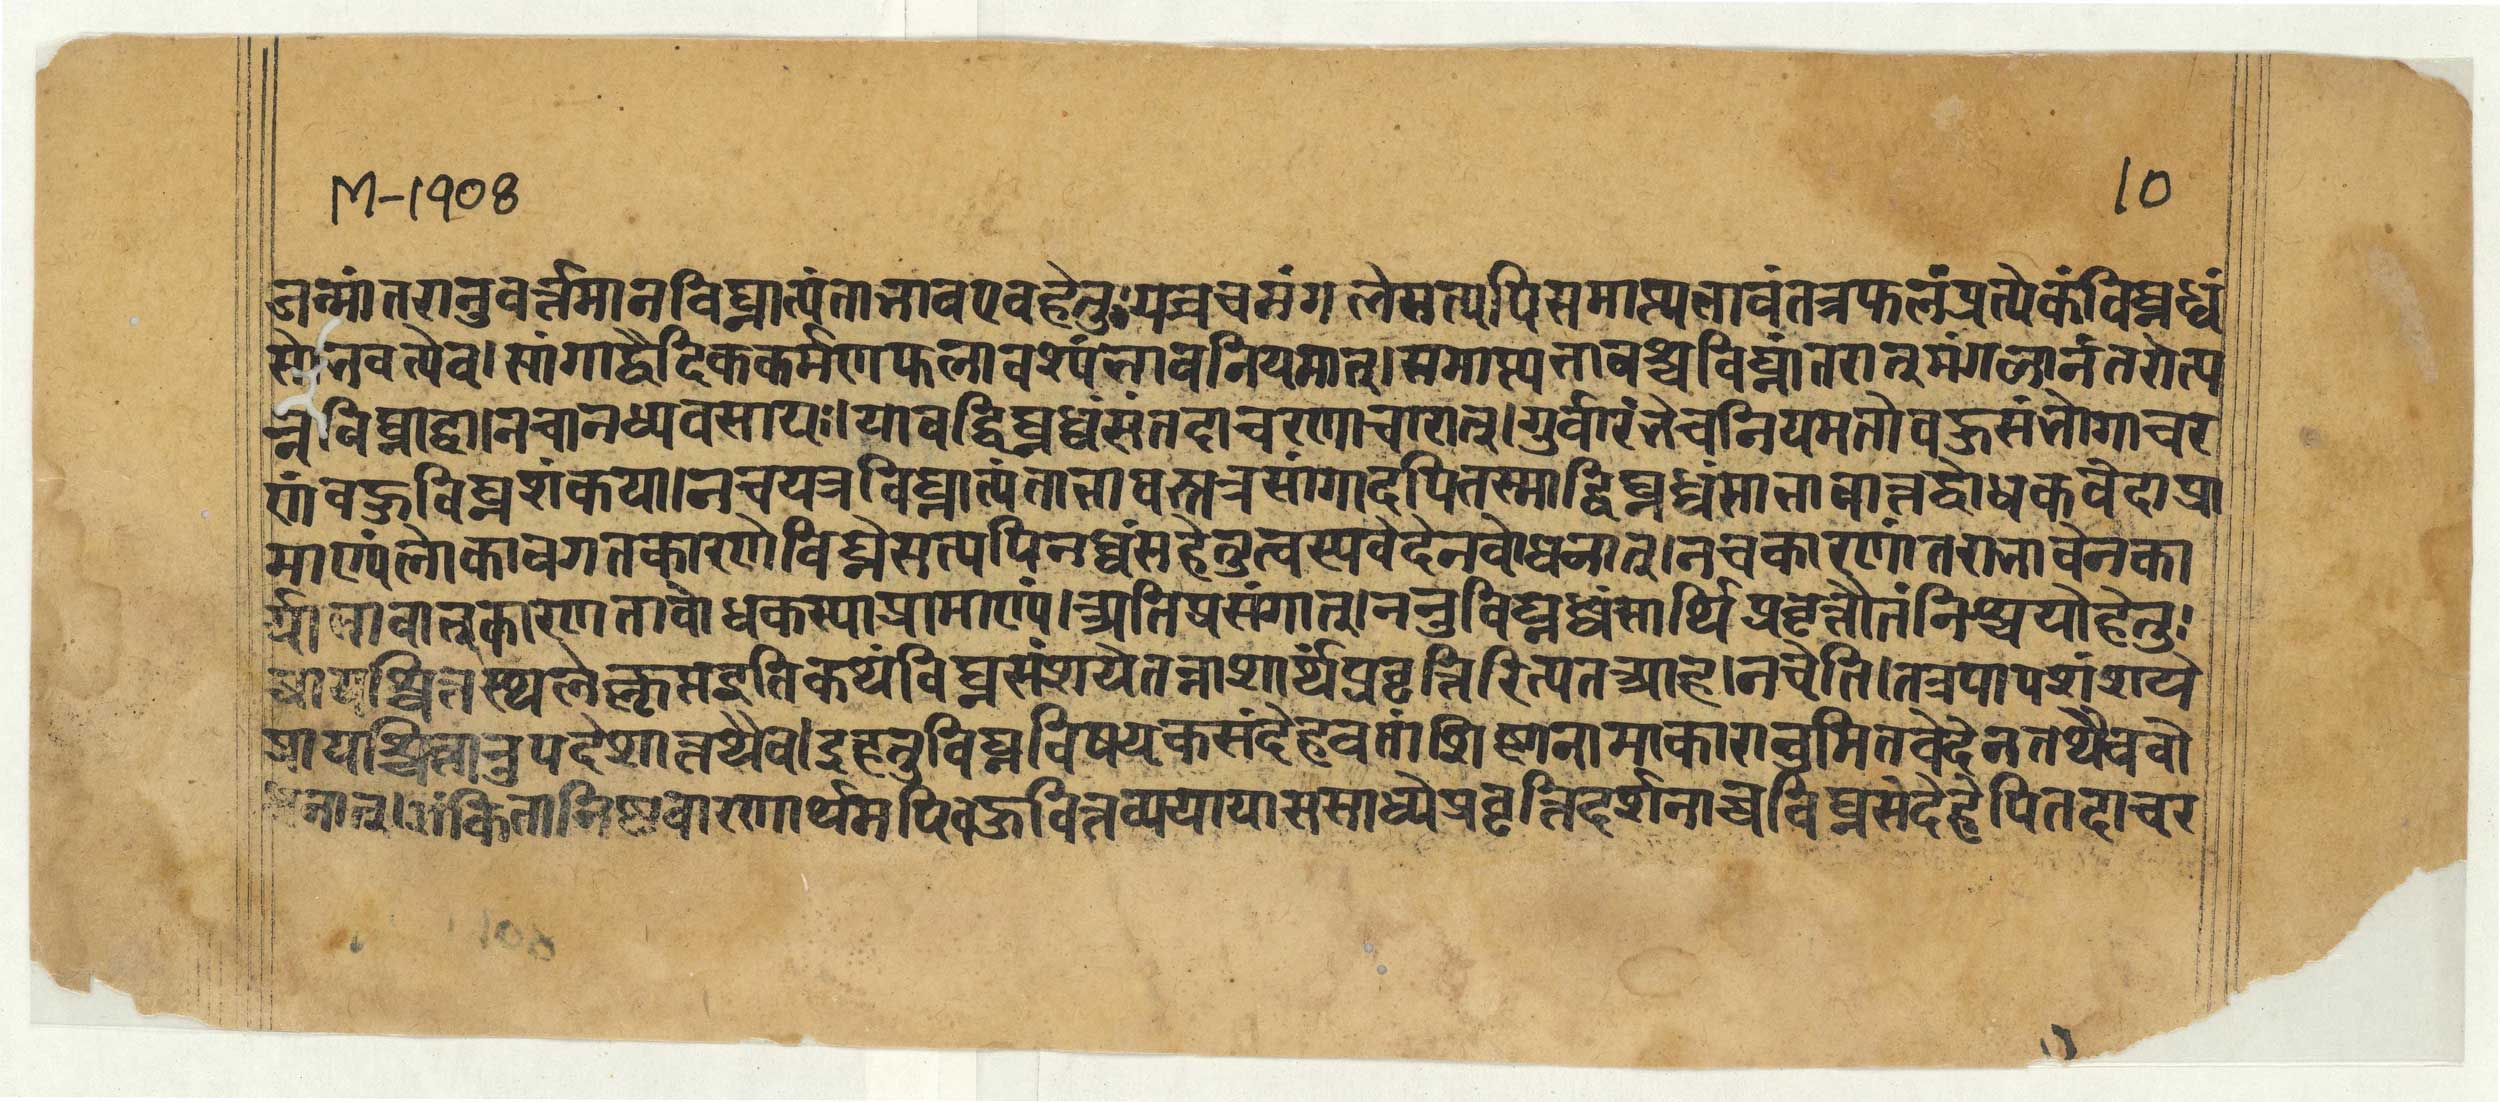 M-1908
10
जन्मांतरानुवर्त्तमानविघ्नात्यंताभावएवहेतुः यत्रचमंगलेसत्यपिसमाप्त्यभावंतत्रफलंप्रत्येकंविघ्नध्वं
सोभवत्येव। सांगाद्वैदिककर्मणफलावश्यंभावनियमात्। समाप्त्यभावश्चविघ्नांतरात्मंगलानंतरोत्प
न्नविघ्नाद्वा। नचानध्यवसायः। यावद्विघ्नध्वंसंतदाचरणाचारात्। गुर्वारंभेचनियमतोवहुसंभोगाचर
णंवहुविघ्नशंकया। नचयत्रविघ्नात्यंताभावस्तत्रसांगादपितस्माद्विघ्नध्वंसाभावात्तद्वोधकवेदाप्रा
माण्यंलोकावगतकारणेविघ्नेसत्यपिनध्वंसहेतुत्वस्यवेदेनवोधनात्। नचकारणांतराभावेनका
र्य्याभावात्कारणतावोधकस्याप्रामाण्यं। अतिप्रसंगात्। ननुविघ्नध्वंसार्थिप्रवृत्तौतंनिश्चयोहेतुः
प्रायश्चित्तस्थलेक्लृप्तइतिकथंविघ्नसंशयेतन्नाशार्थंप्रवृत्तिरित्यतआह। नचेति। तत्रपापशंशये
प्रायश्चित्तानुपदेशात्तथैव। इहतुविघ्नविषयकसंदेहवतांशिष्टानामाकारानुमितवेदेनतथैववो
धनात्। शंकितानिष्टवारणार्थमपिवहुवित्तव्ययायाससाध्येप्रवृत्तिदर्शनाच्चविघ्नसंदेहेपितदाचर